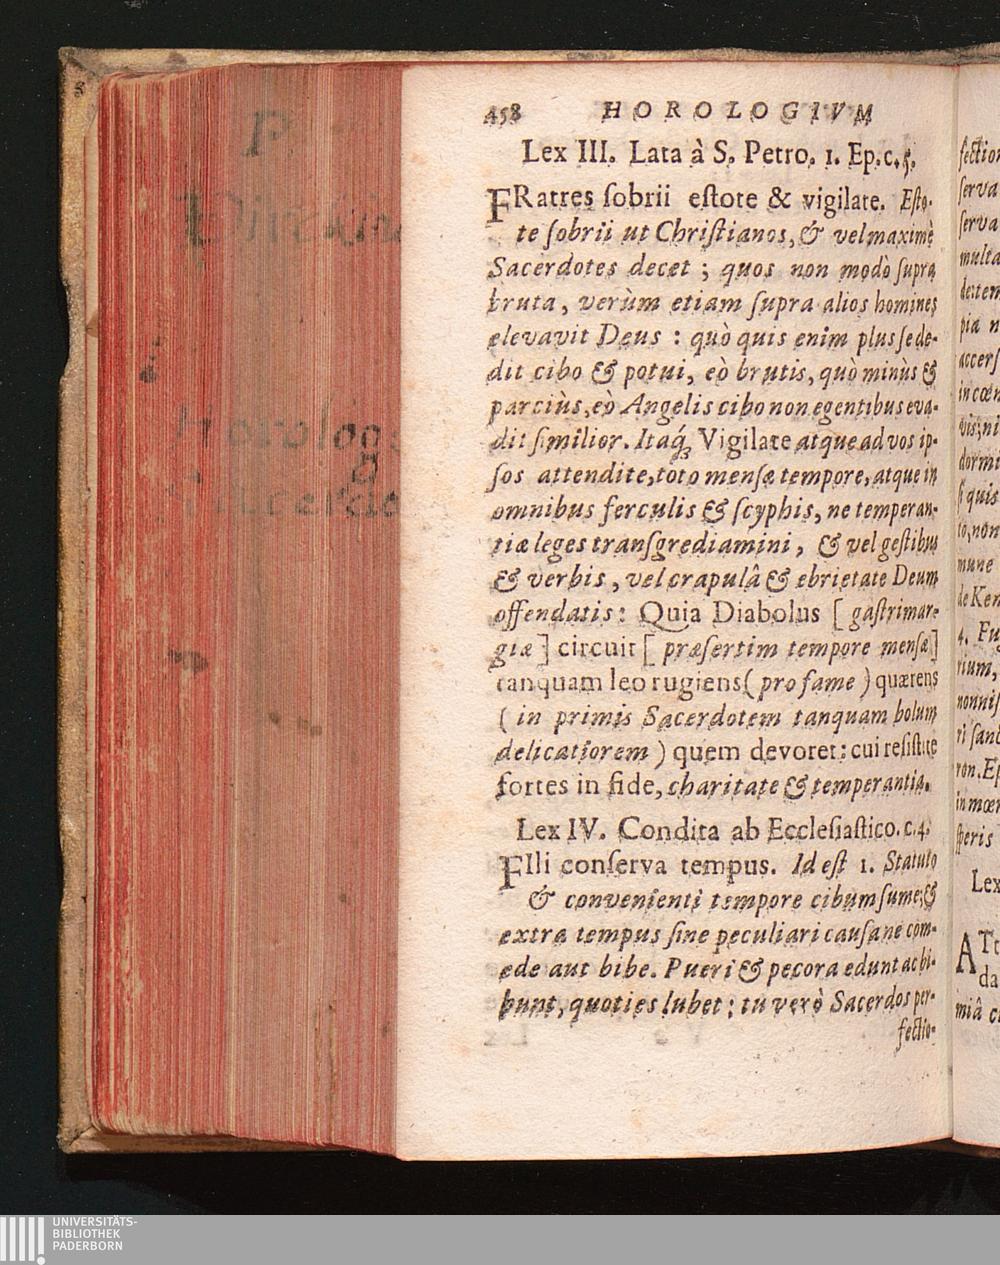 458 HOROLOGIVM
Lex III. Lata à S. Petro. 1. Ep. c. 5.
FRatres ſobrii eſtote & vigilate. Eſto-
te ſobrii ut Chriſtianos, & vel maximè
Sacerdotes decet ; quos non modò ſupra
bruta, verùm etiam ſupra alios homines
elevavit Deus : quò quis enim plus ſe de-
dit cibo & potui, eò brutis, quò minùs &
parciùs, eò Angelis cibo non egentibus eva-
dit ſimilior. Itaq́ꝫ Vigilate atque ad vos ip-
ſos attendite, toto menſæ tempore, atque in
omnibus ferculis & ſcyphis, ne temperan-
tiæ leges tranſgrediamini, & vel geſtibus
& verbis, vel crapulâ & ebrietate Deum
offendatis: Quia Diabolus [ gaſtrimar-
giæ ] circuit [ præſertim tempore menſæ]
tanquam leo rugiens ( pro fame ) quærens
( in primis Sacerdotem tanquam bolum
delicatiorem ) quem devoret: cui reſiſtite
fortes in fide, charitate & temperantia.
Lex IV. Condita ab Eccleſiaſtico. c. 4.
FIli conſerva tempus. Id eſt 1. Statuto
& convenienti tempore cibum ſume; &
extra tempus ſine peculiari cauſa ne com-
ede aut bibe. Pueri & pecora edunt ac bi-
bunt, quoties lubet ; tu verò Sacerdos per-
fectio-
fectio
ſerva
ſerva
multa
pia n
accerſ
in cœn
vis; ni
dormi
ſi quis
to, non
mune
de Ken
4. Fu
rium,
nonniſ
ri ſanc
ron. Ep
in mœr
ſteris
Lex
ATt
da
miâ c
P.
Horolog
UNIVERSITÄTS-
BIBLIOTHEK
PADERBORN